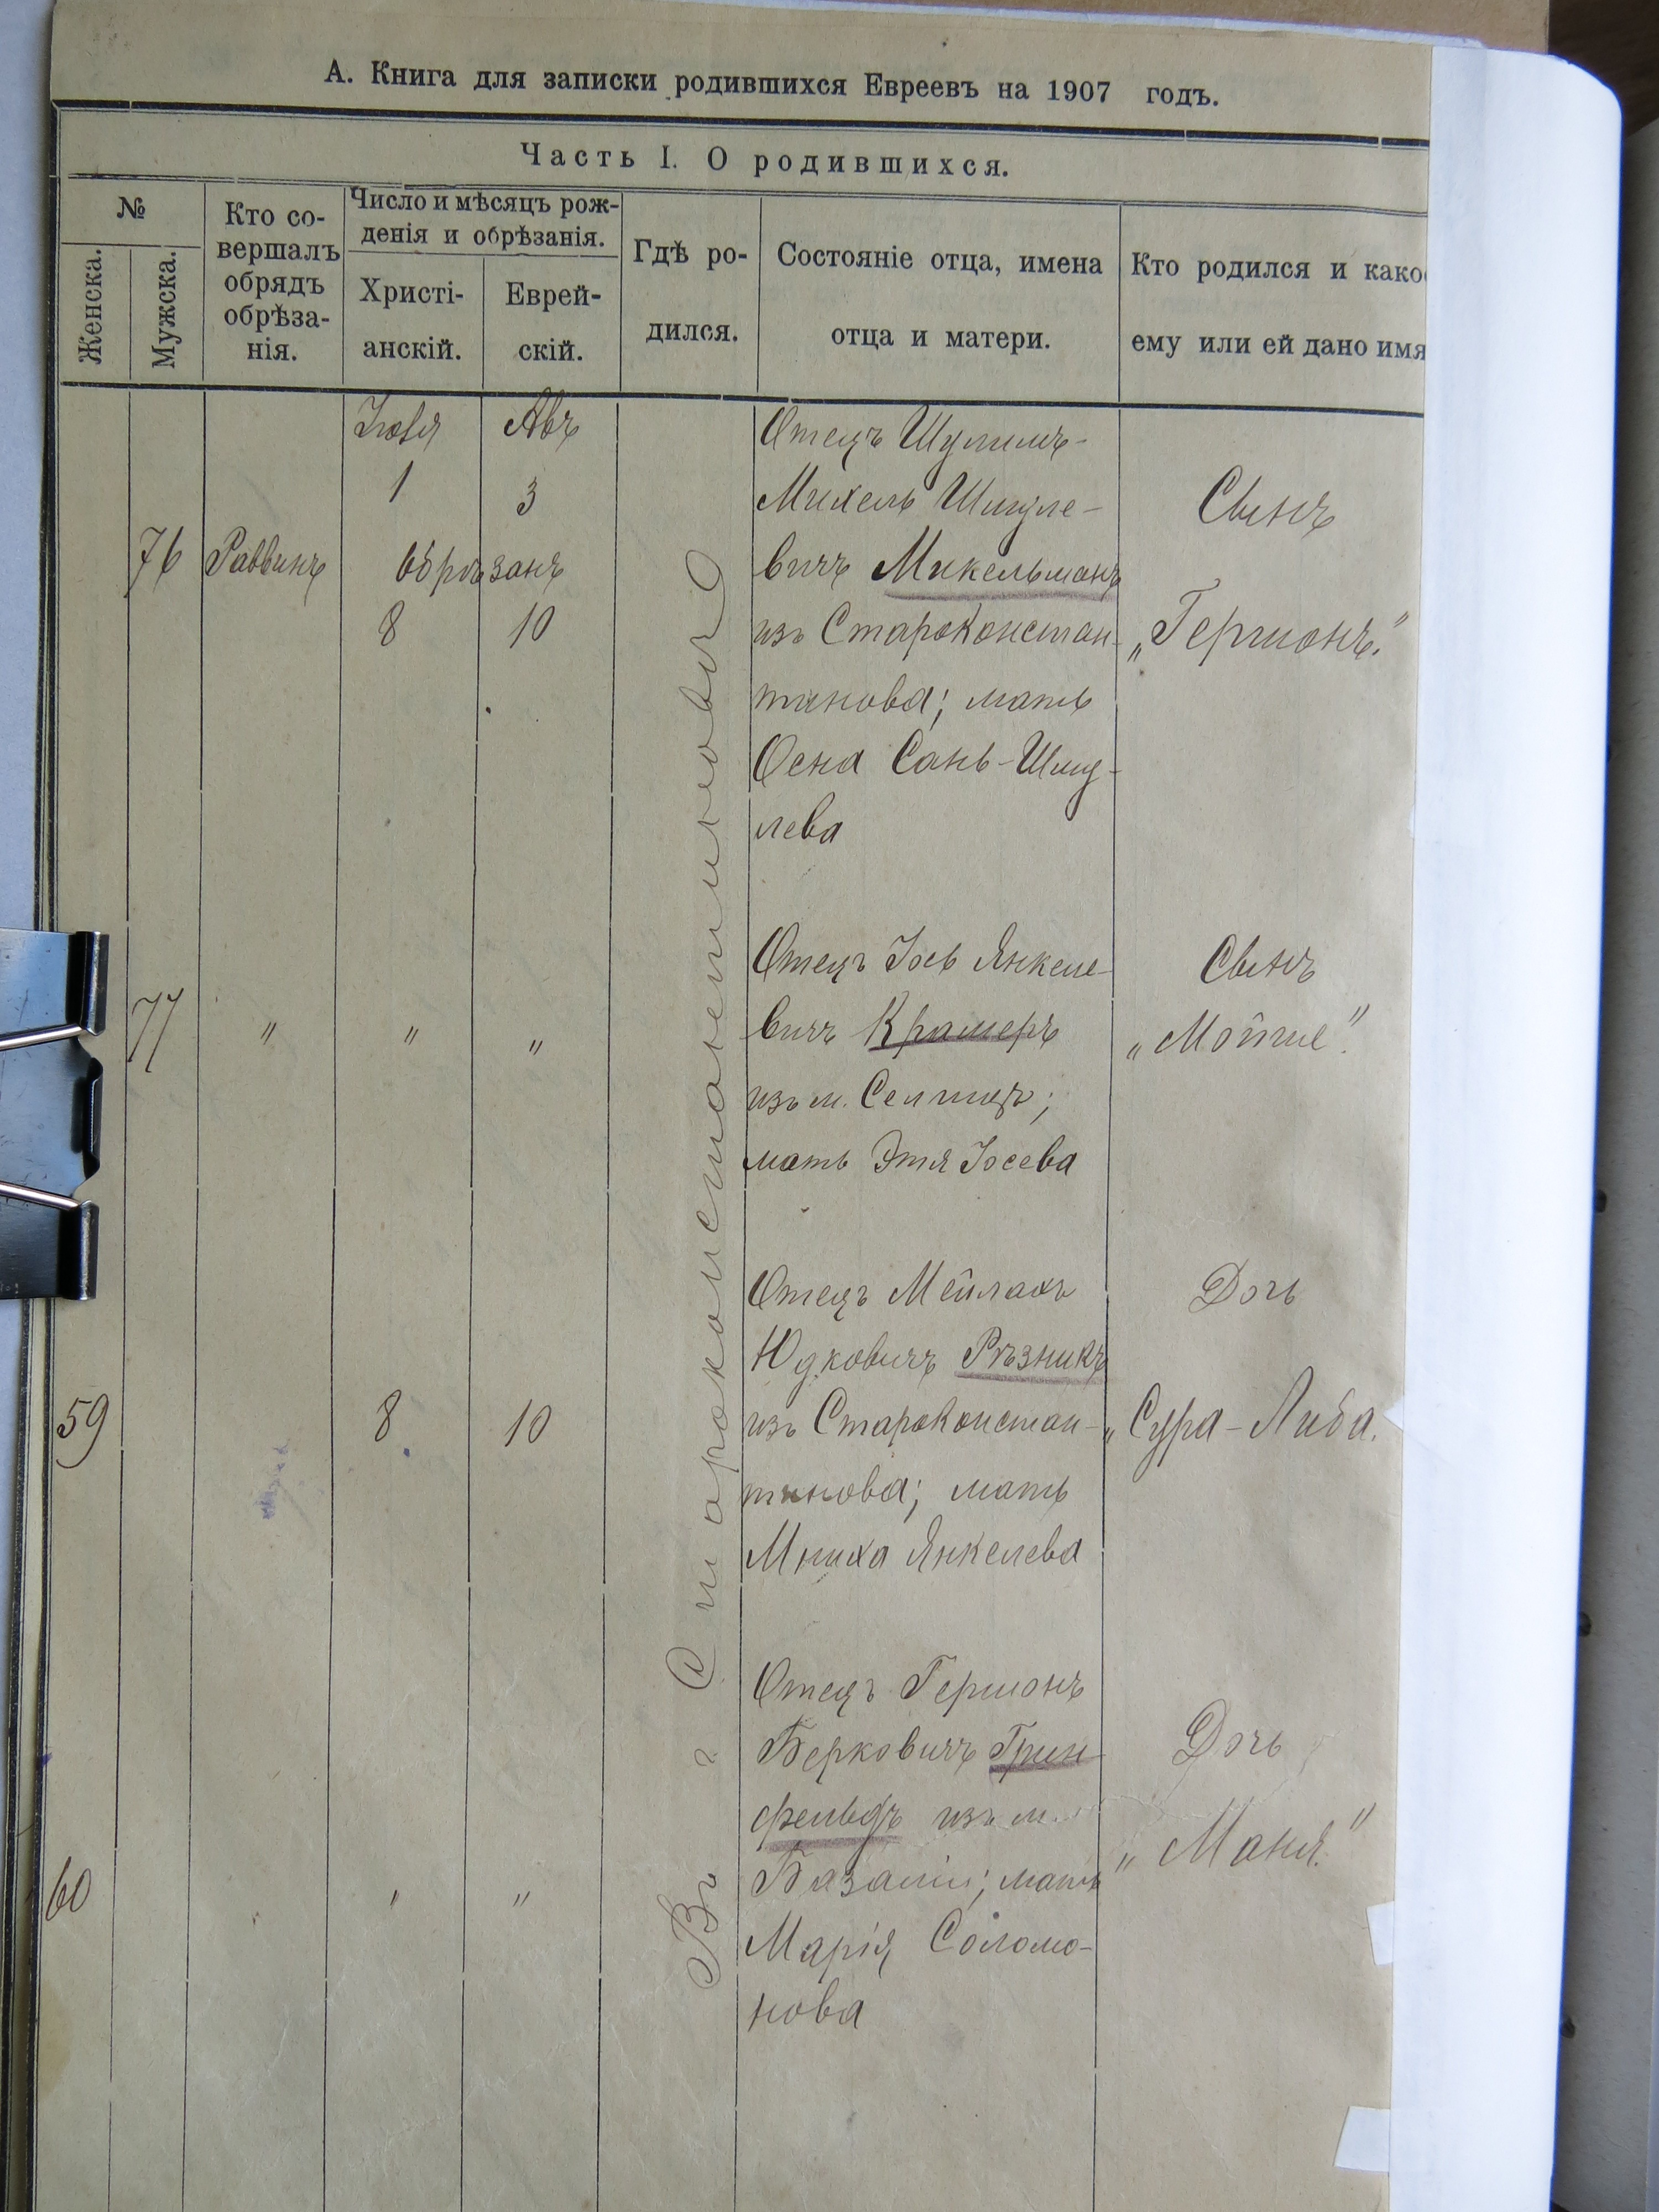 А. Книга для записки родившихся Евреевъ на 1907 годъ.
Часть I. О родившихся.
№
Женска.
Мужска.
Кто со-
вершалъ
обрядъ
обрѣза-
нія.
Число и мѣсяцъ рож-
денія и обрѣзанія.
Христі-
анскій.
Еврей-
скій.
Гдѣ ро-
дился.
Состояніе отца, имена
отца и матери.
Кто родился и како
ему или ей дано имя
Въ г. Староконстантиновѣ
Іюля Авъ
1 3
76 Раввинъ Обрѣзанъ
8 10
Отецъ Шулимъ-
Михель Шмуле-
вичъ Микельманъ
изъ Староконстан-
тинова; мать
Осна Сань-Шму-
лева
Сынъ
„Гершонъ."
77 " " "
Отецъ Іось Янкеле-
вичъ Крамеръ
изъ м.
мать Этя Іосева
Сынъ
„Мойше."
59 8 10
Отецъ Мейлахъ
Юдковичъ Рѣзникъ
изъ Староконстан-
тинова; мать
Янкелева
Дочь
„Сура-Либа.
60 " "
Отецъ Гершонъ
Берковичъ Грин-
фельдъ изъ м.
Базаліи; мать
Марія Соломо-
нова
Дочь
„Маня."